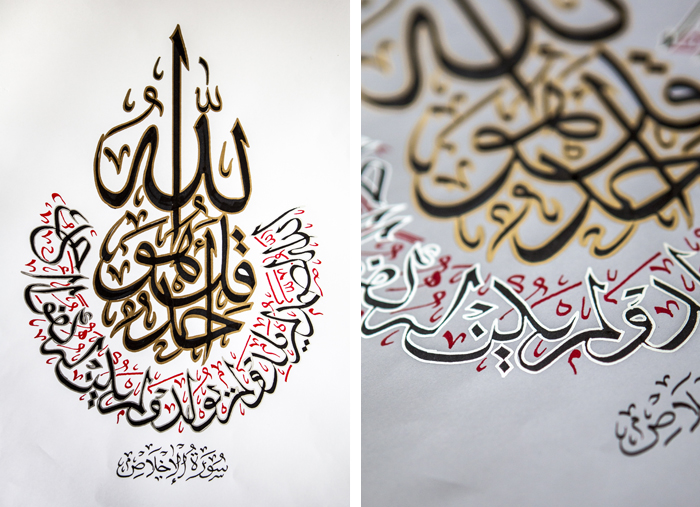 قل هو الله أحد
الله الصمد لم يلد ولم يولد ولم يكن له كفوا أحد
سورة الإخلاص
قل هو
أحد
ولم يكن له